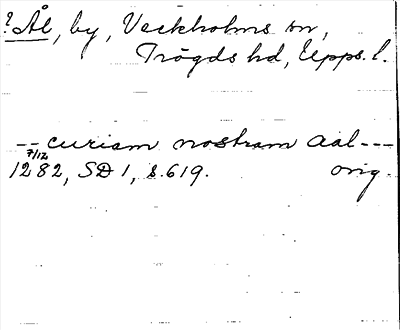 ? Ål, by, Veckholms sn,
Trögds hd, Upps. l.
-- curiam nostram Aal ---
7/12
1282, SD 1, s. 619. orig.